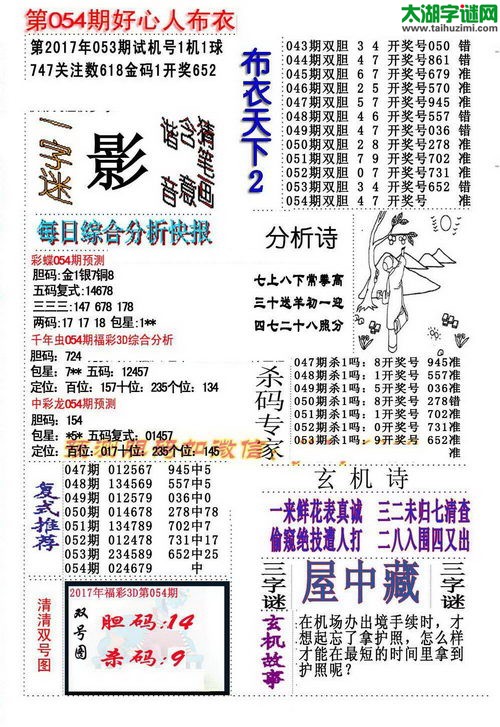 第054期好心人布衣
太湖字谜网
www.taihuzimi.com
第2017年053期试机号1机1球
747关注数618金码1开奖652
一字谜
影
猜含猪
笔画
意
音
布衣天下2
043期双胆 3 4 开奖号050 错
044期双胆 4 7 开奖号861 错
045期双胆 6 7 开奖号679 准
046期双胆 2 5 开奖号570 准
047期双胆 5 7 开奖号945 准
048期双胆 4 6 开奖号557 错
049期双胆 4 7 开奖号036 错
050期双胆 2 9 开奖号278 准
051期双胆 7 9 开奖号702 准
052期双胆 0 7 开奖号731 准
053期双胆 3 4 开奖号652 错
054期双胆 4 7 开奖号 准
每日综合分析快报
彩蝶054期预测
胆码:金1银7铜8
五码复式:14678
三三三:147 678 178
两码:17 17 18 包星:1**
千年虫054期福彩3D综合分析
胆码: 724
包星: 7** 五码: 12457
定位: 百位: 157十位: 235个位: 134
中彩龙054期预测
胆码: 154
包星: *5* 五码复式: 01457
定位: 百位: 017十位: 235个位: 145
分析诗
七上八下常攀高
三十送羊初一迎
四七二十八照分
杀码专家
047期杀1吗: 8开奖号 945准
048期杀1吗: 1开奖号 557准
049期杀1吗: 5开奖号 036准
050期杀1吗: 0开奖号 278准
051期杀1吗: 8开奖号 702准
052期杀1吗: 2开奖号 731准
053期杀1吗: 9开奖号 652准
复式推荐
047期 012567 945中5
048期 134569 557中5
049期 012579 036中0
050期 014678 278中78
051期 134789 702中7
052期 012349 731中17
053期 234589 652中25
054期 024679 中
玄机诗
一来鲜花表真诚 三二未归七清查
偷窥绝技遭人打 二八入围四又出
清清双号图
2017年福彩3D第054期
双号图
胆码:14
杀码:9
三字谜
屋中藏
三字谜
玄机故事
在机场办出境手续时,才
想起忘了拿护照,怎么样
才能在最短的时间里拿到
护照呢?